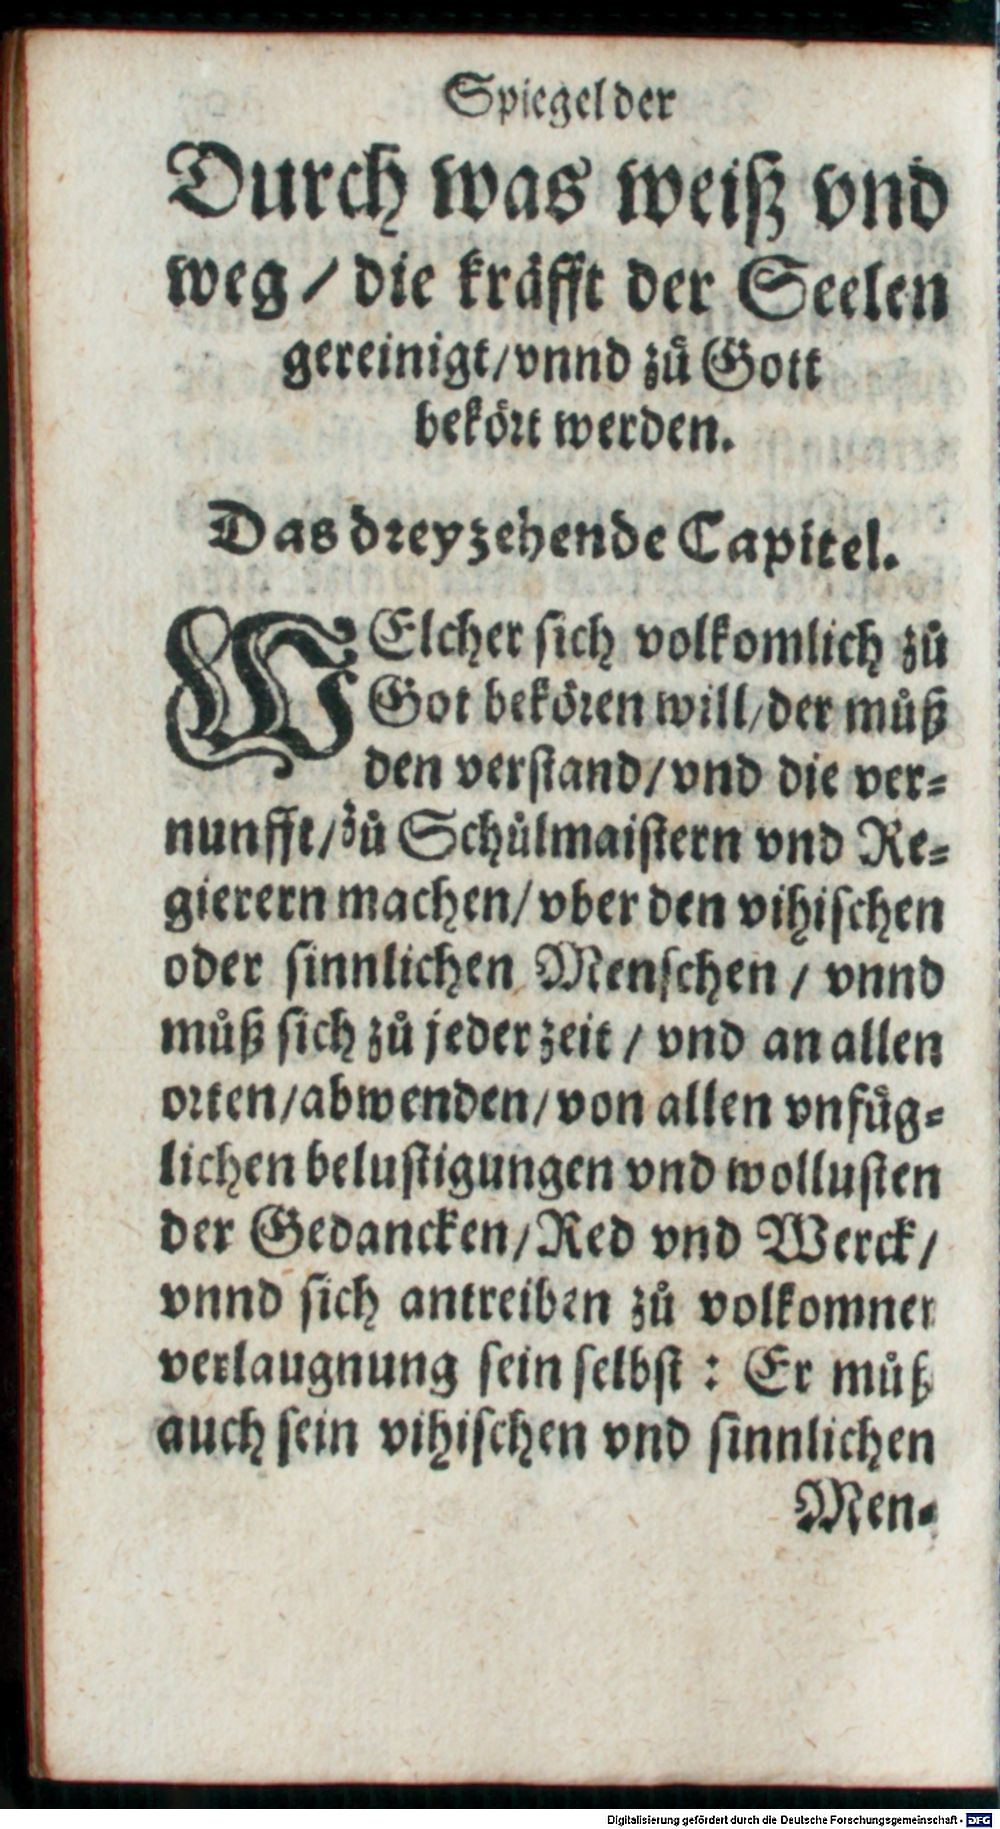 Spiegel der
Durch was weiß vnd
weg / die kräfft der Seelen
gereinigt/vnnd zů Gott
bekört werden.
Das dreyzehende Capitel.
WElcher sich volkomlich zů
Got bekören will/der můß
den verstand/vnd die ver-
nunfft/zů Schůlmaistern vnd Re-
gierern machen/vber den vihischen
oder sinnlichen Menschen / vnnd
můß sich zů jeder zeit / vnd an allen
orten/abwenden/von allen vnfüg-
lichen belustigungen vnd wollusten
der Gedancken/Red vnd Werck/
vnnd sich antreiben zů volkomner
verlaugnung sein selbst : Er můß
auch sein vihischen vnd sinnlichen
Men-
Digitalisierung gefördert durch die Deutsche Forschungsgemeinschaft - DFG